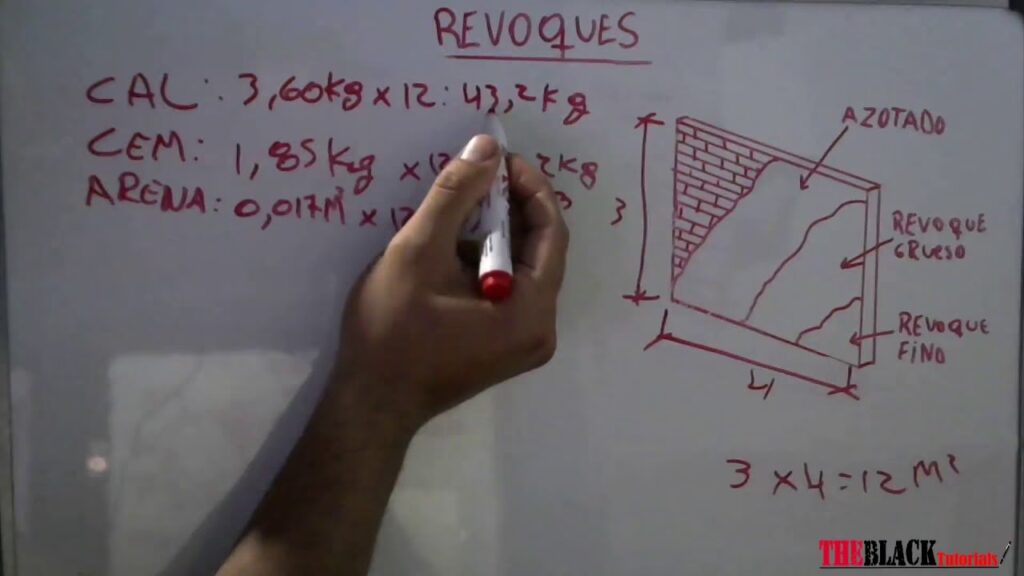 REVOQUES
CAL: 3,60kg x 12: 43,2kg
CEM: 1,85kg x 12 2kg
ARENA: 0,017M³ x 12 3
AZOTADO
3
REVOQUE
GRUESO
REVOQUE
FINO
4
3 x 4 = 12 M²
THEBLACK Tutorials